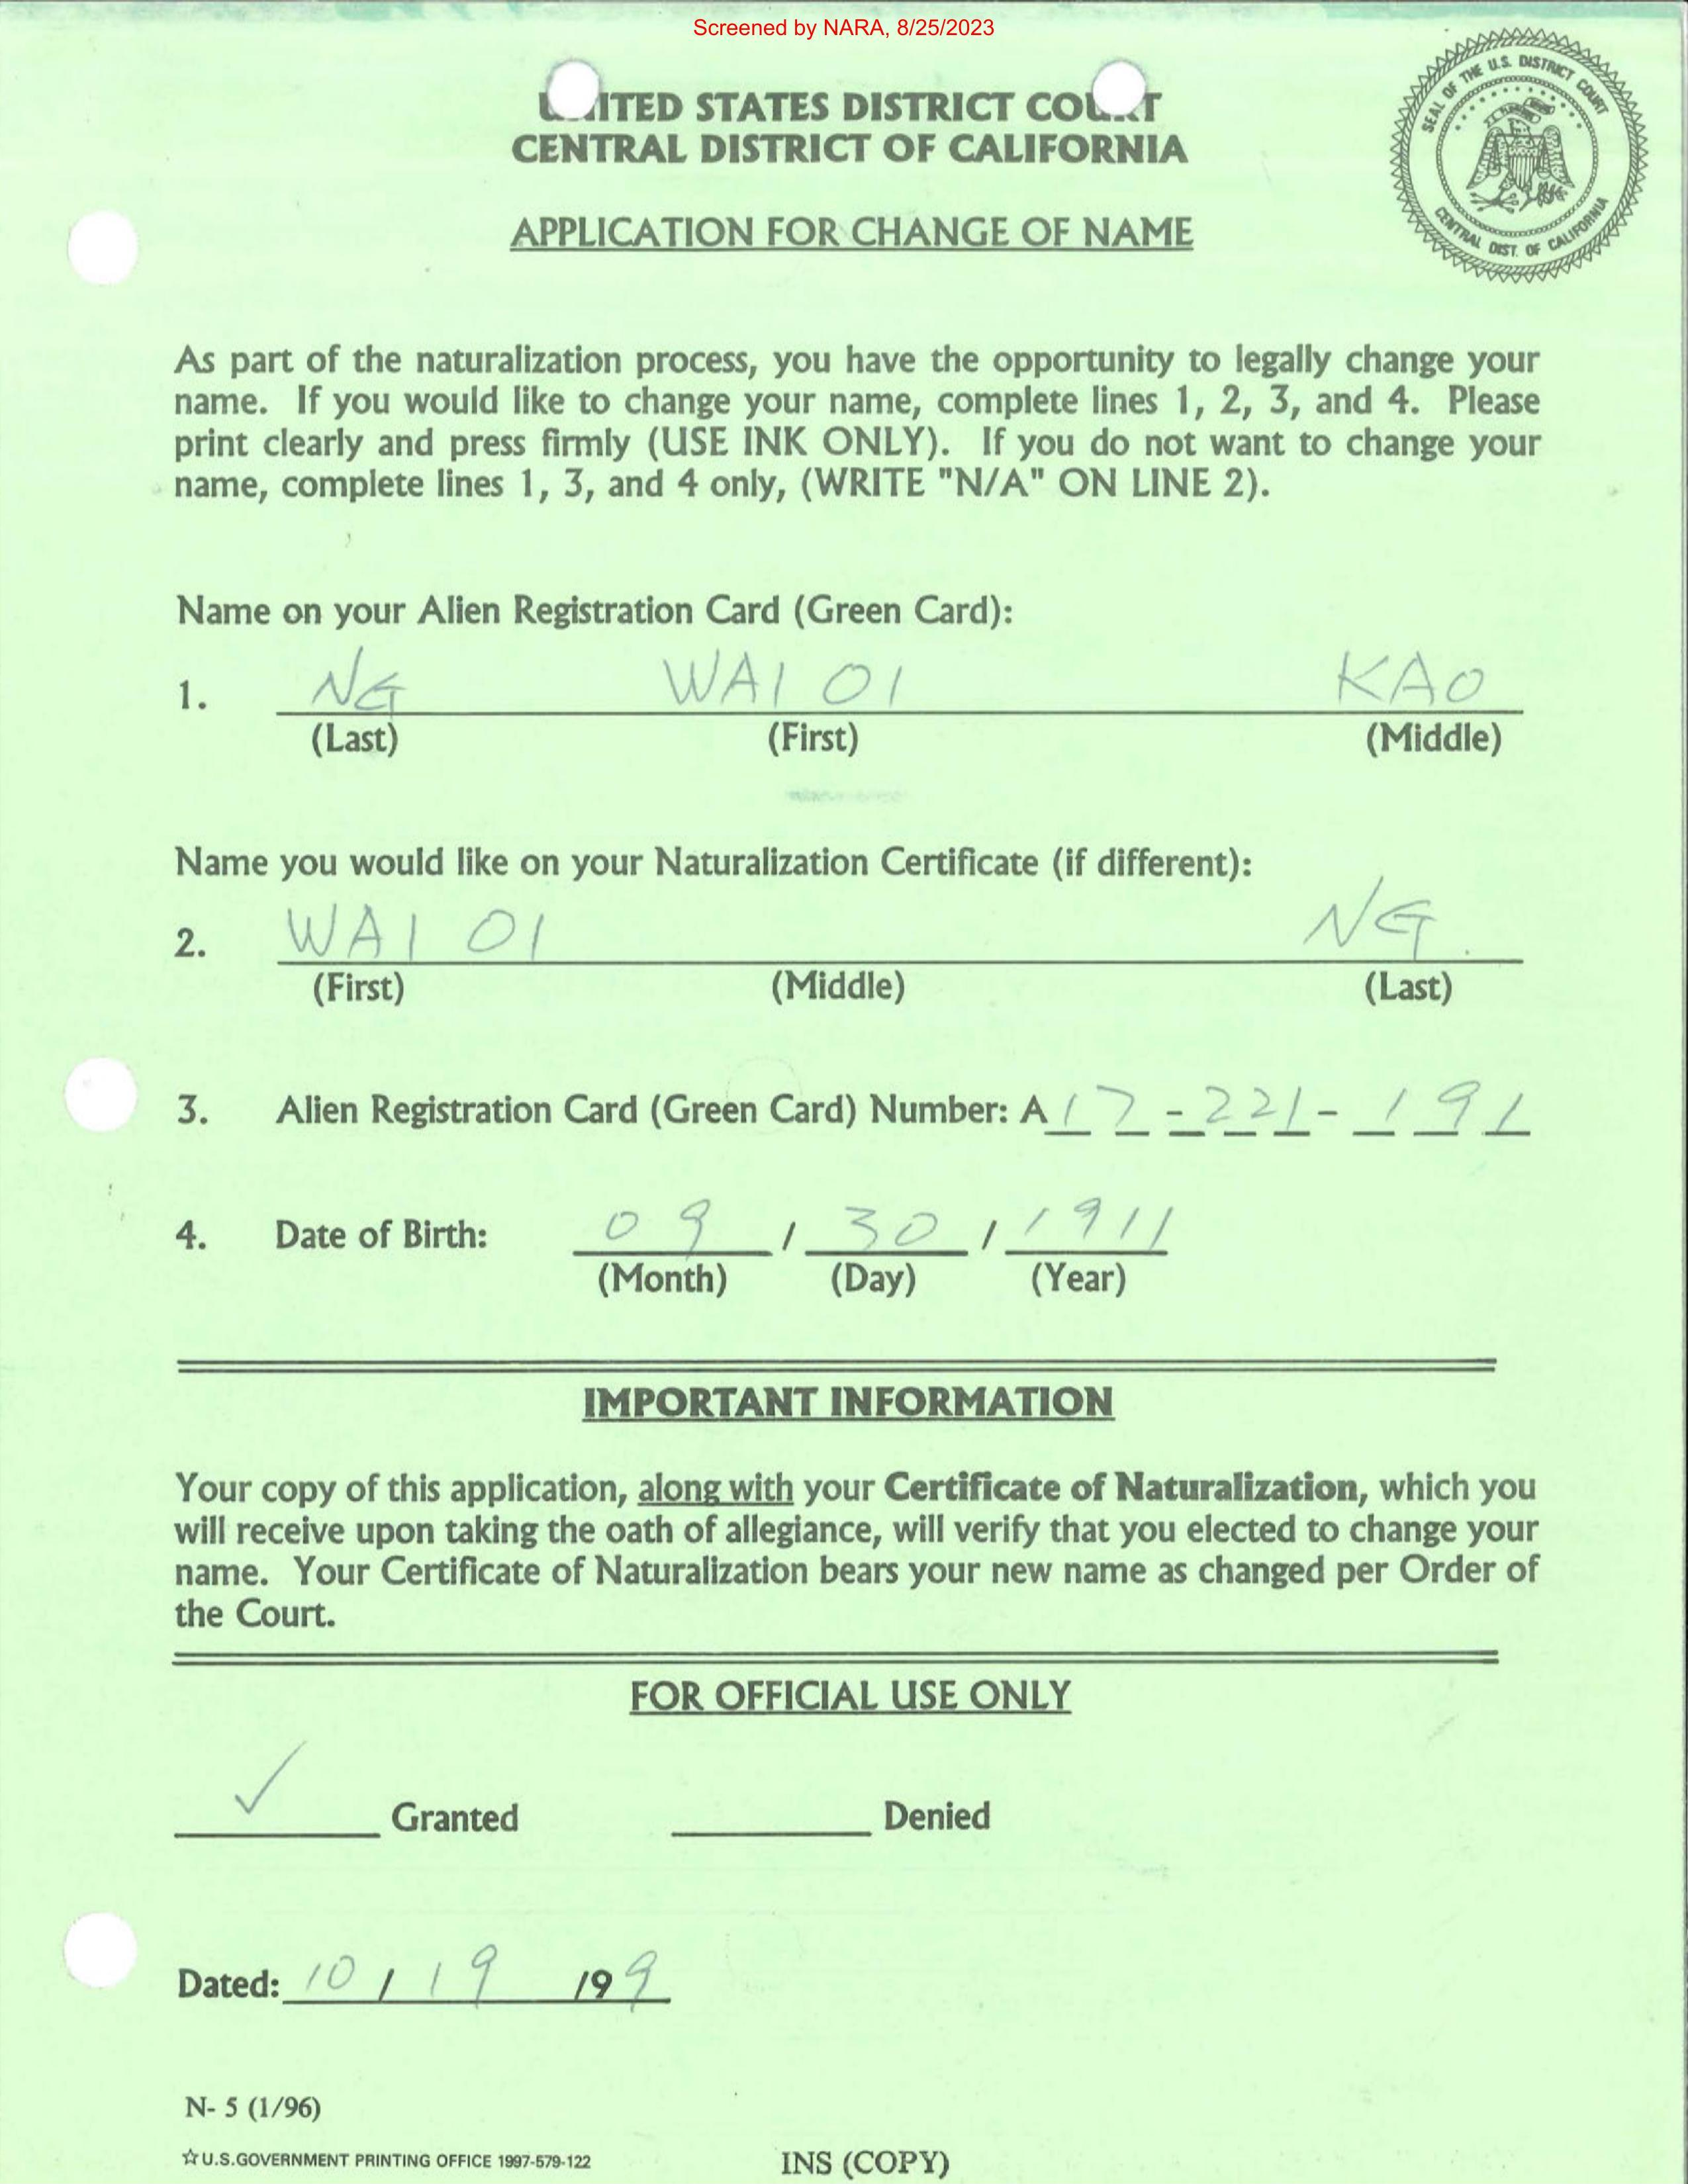 Screened by NARA, 8/25/2023
UNITED STATES DISTRICT COURT
CENTRAL DISTRICT OF CALIFORNIA
SEAL OF THE U.S. DISTRICT COURT
CENTRAL DIST. OF CALIFORNIA
APPLICATION FOR CHANGE OF NAME
As part of the naturalization process, you have the opportunity to legally change your
name. If you would like to change your name, complete lines 1, 2, 3, and 4. Please
print clearly and press firmly (USE INK ONLY). If you do not want to change your
name, complete lines 1, 3, and 4 only, (WRITE "N/A" ON LINE 2).
Name on your Alien Registration Card (Green Card):
1. NG WAI OI KAO
(Last) (First) (Middle)
Name you would like on your Naturalization Certificate (if different):
2. WAI OI NG.
(First) (Middle) (Last)
3. Alien Registration Card (Green Card) Number: A 17-221-191
4. Date of Birth: 09 / 30 / 1911
(Month) (Day) (Year)
IMPORTANT INFORMATION
Your copy of this application, along with your Certificate of Naturalization, which you
will receive upon taking the oath of allegiance, will verify that you elected to change your
name. Your Certificate of Naturalization bears your new name as changed per Order of
the Court.
FOR OFFICIAL USE ONLY
✓ Granted Denied
Dated: 10 / 19 /99
N- 5 (1/96)
☆U.S.GOVERNMENT PRINTING OFFICE 1997-579-122
INS (COPY)